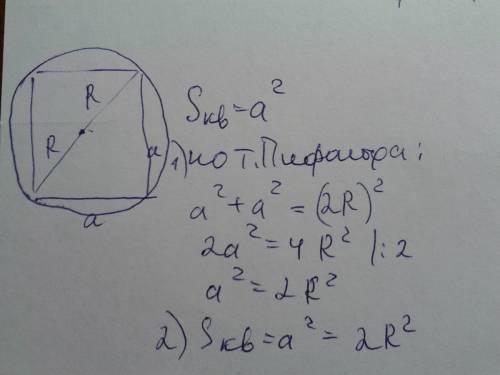 R
R
a
a
Sкв=a²
1) по т.Пифагора:
a²+a²=(2R)²
2a²=4R² |:2
a²=2R²
2) Sкв=a²=2R²